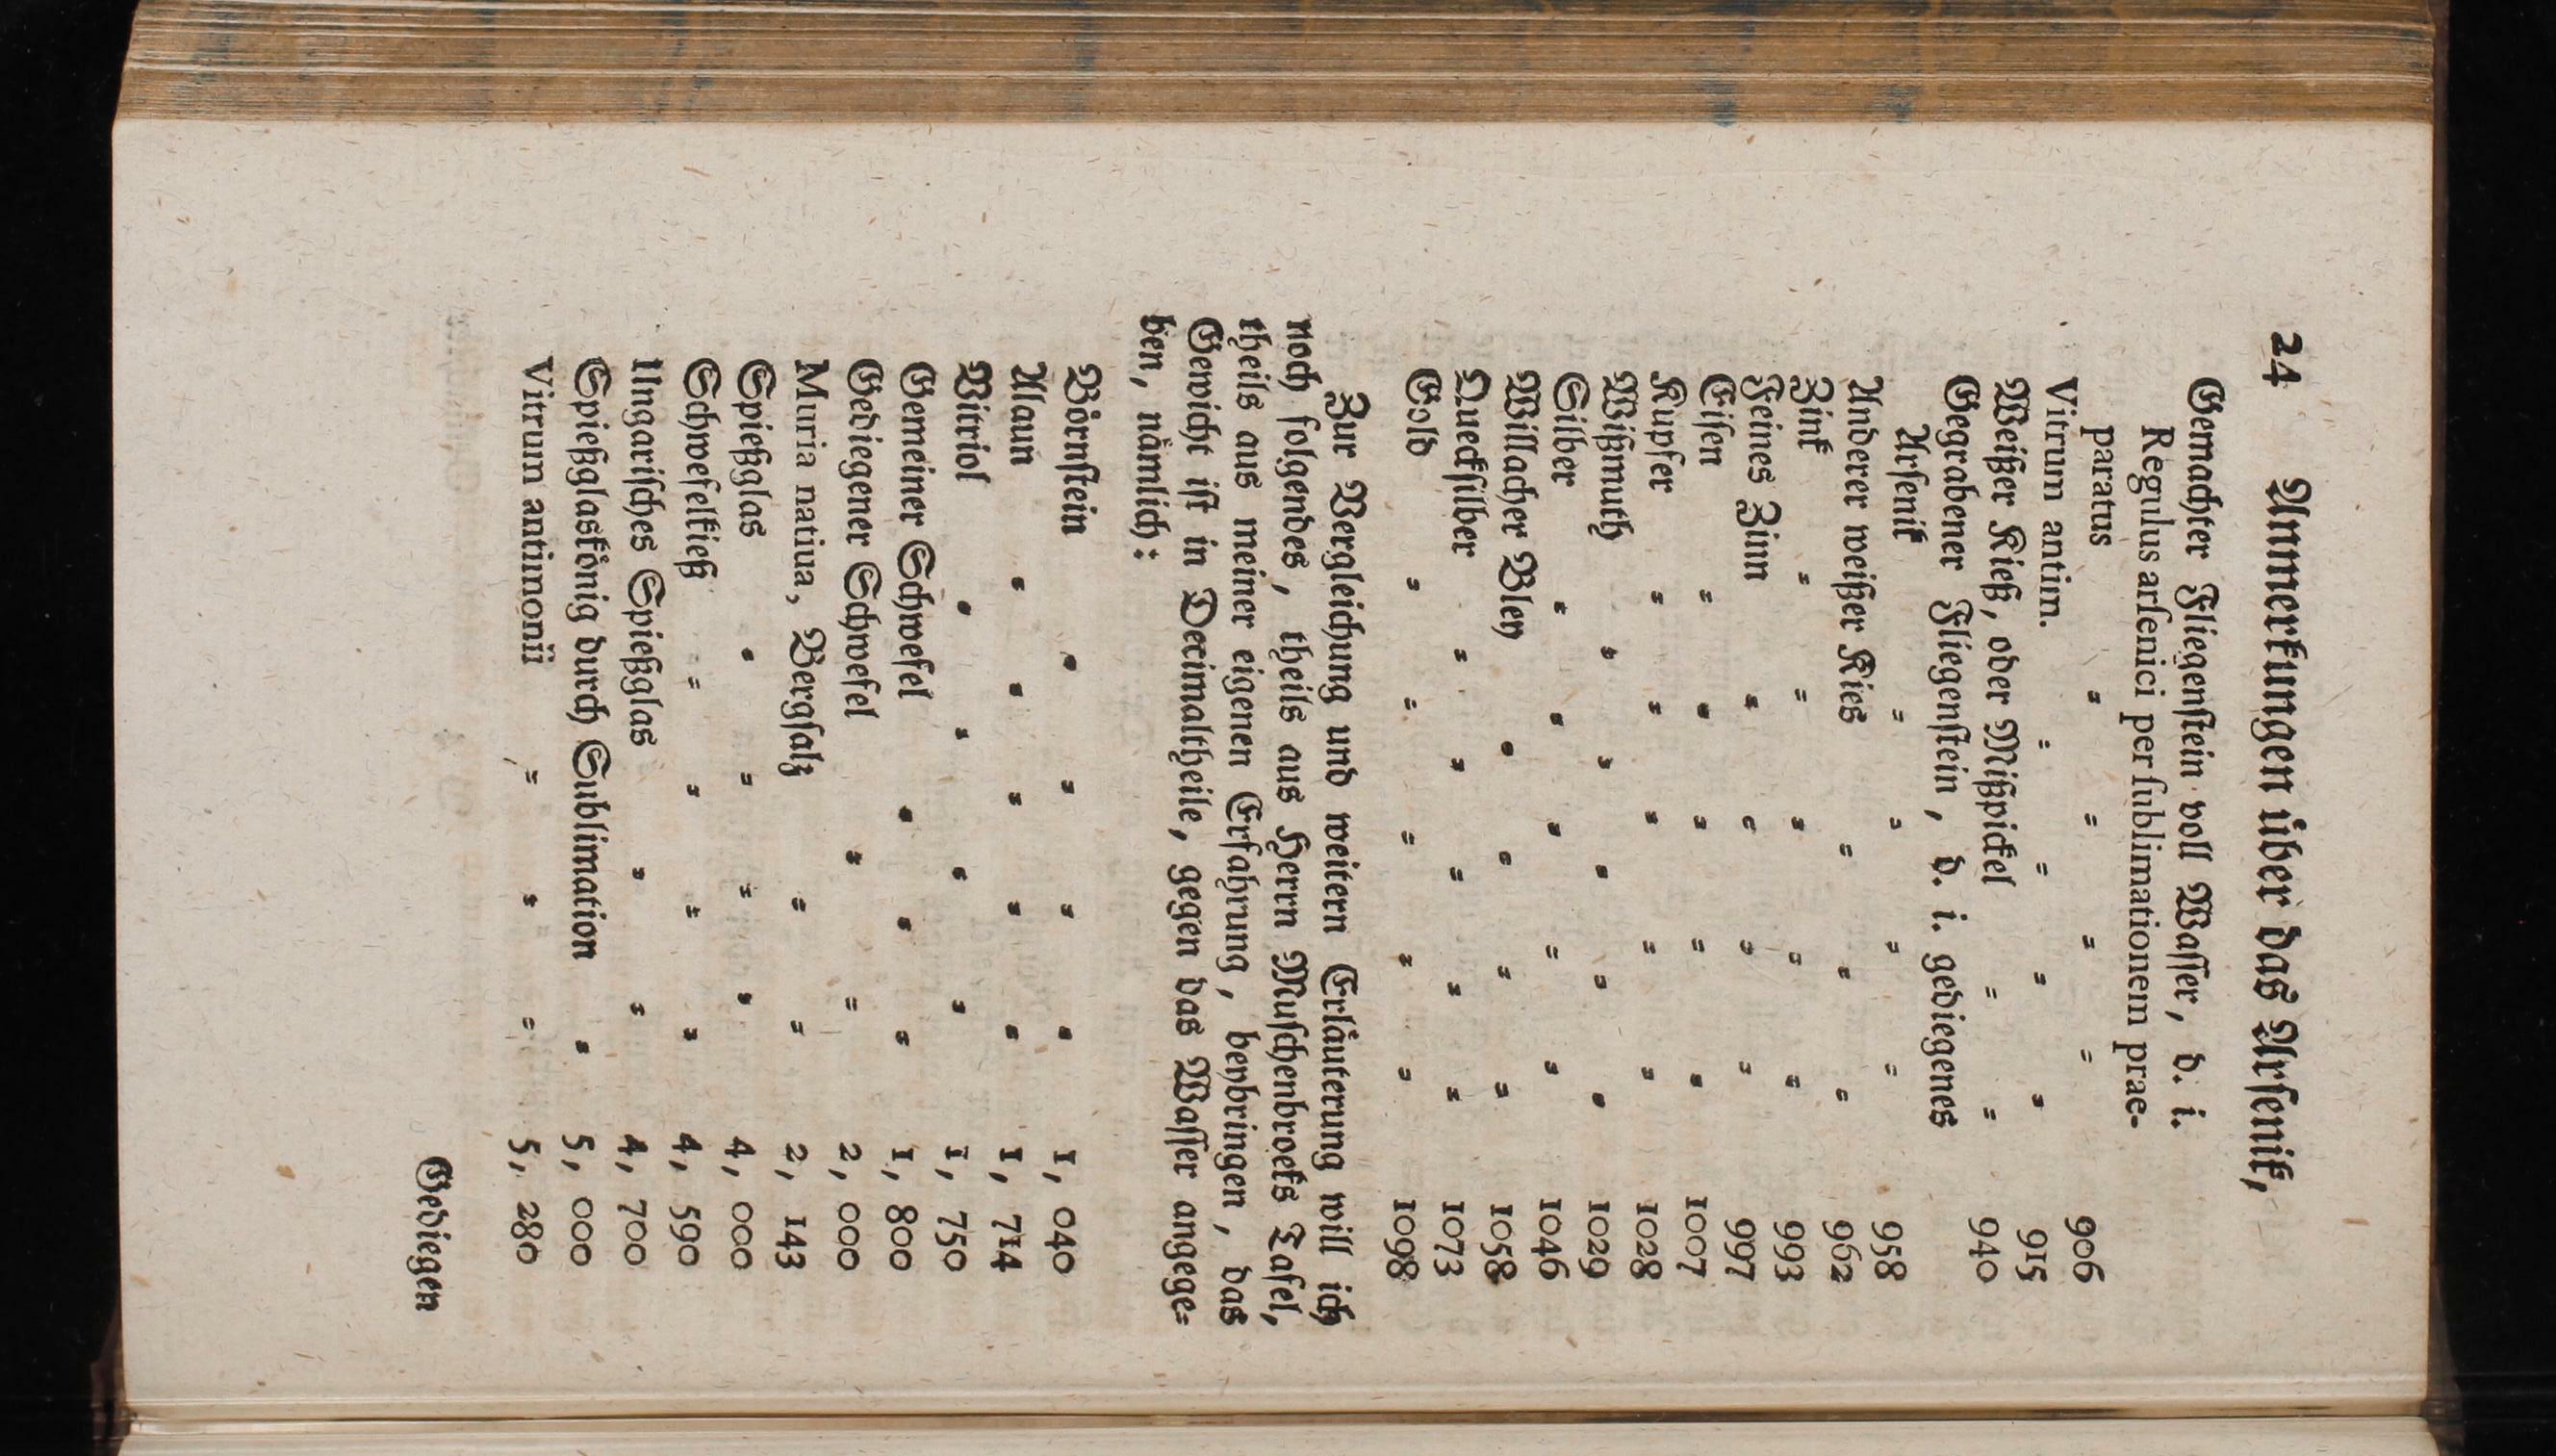 24 Anmerkungen über das Arſenik,
Gemachter Fliegenſtein voll Waſſer, d. i.
Regulus arſenici per ſublimationem prae-
paratus = = = = 906
Vitrum antim. = = = = 915
Weißer Kieß, oder Mißpickel = = 940
Gegrabener Fliegenſtein, d. i. gediegenes
Arſenik = = = = 958
Anderer weißer Kies = = = 962
Zink = = = = = 993
Feines Zinn = = = = 997
Eiſen = = = = = 1007
Kupfer = = = = = 1028
Wißmuth = = = = = 1029
Silber = = = = = 1046
Willacher Bley = = = = 1058
Queckſilber = = = = = 1073
Gold = = = = = 1098
Zur Vergleichung und weitern Erläuterung will ich
noch folgendes, theils aus Herrn Muſchenbroeks Tafel,
theils aus meiner eigenen Erfahrung, beybringen, das
Gewicht iſt in Decimaltheile, gegen das Waſſer angege=
ben, nämlich:
Börnſtein = = = = 1, 040
Alaun = = = = = 1, 714
Vitriol = = = = 1, 750
Gemeiner Schwefel = = = 1, 800
Gediegener Schwefel = = 2, 000
Muria natiua, Bergſalz = = 2, 143
Spießglas = = = = 4, 000
Schwefelkieß = = = = 4, 590
Ungariſches Spießglas = = 4, 700
Spießglaskönig durch Sublimation = 5, 000
Vitrum antimonii = = = 5, 280
Gediegen